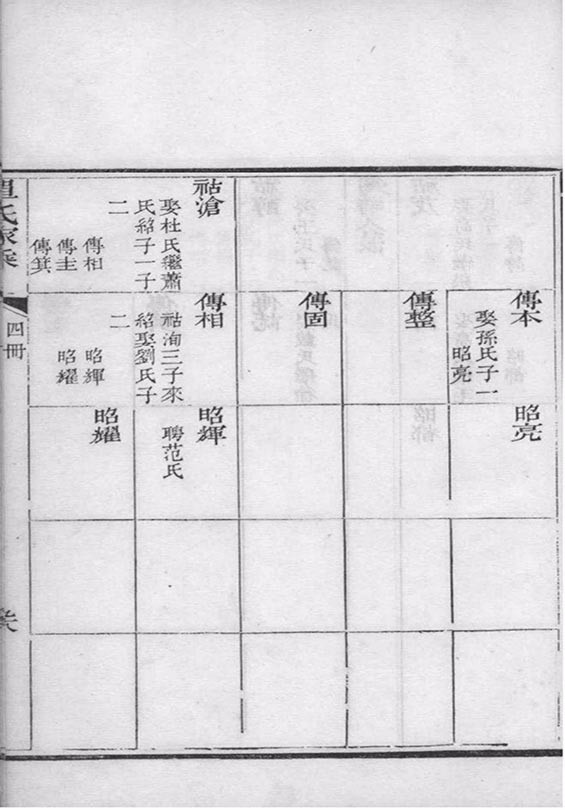 祜滄
娶杜氏繼蕭
氏紹子一子
二
傳相
傳圭
傳箕
傳本
娶孫氏子一
昭亮
傳整
傳固
傳相
祜洵三子來
紹娶劉氏子
二
昭輝
昭耀
昭亮
昭輝
聘范氏
昭耀
氏家乘
四冊